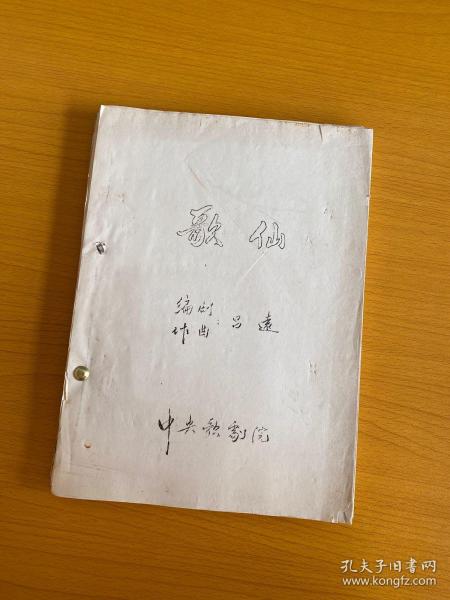 歌仙
编剧
作曲：吕远
中央歌剧院
孔夫子旧书网
www.kongfz.com